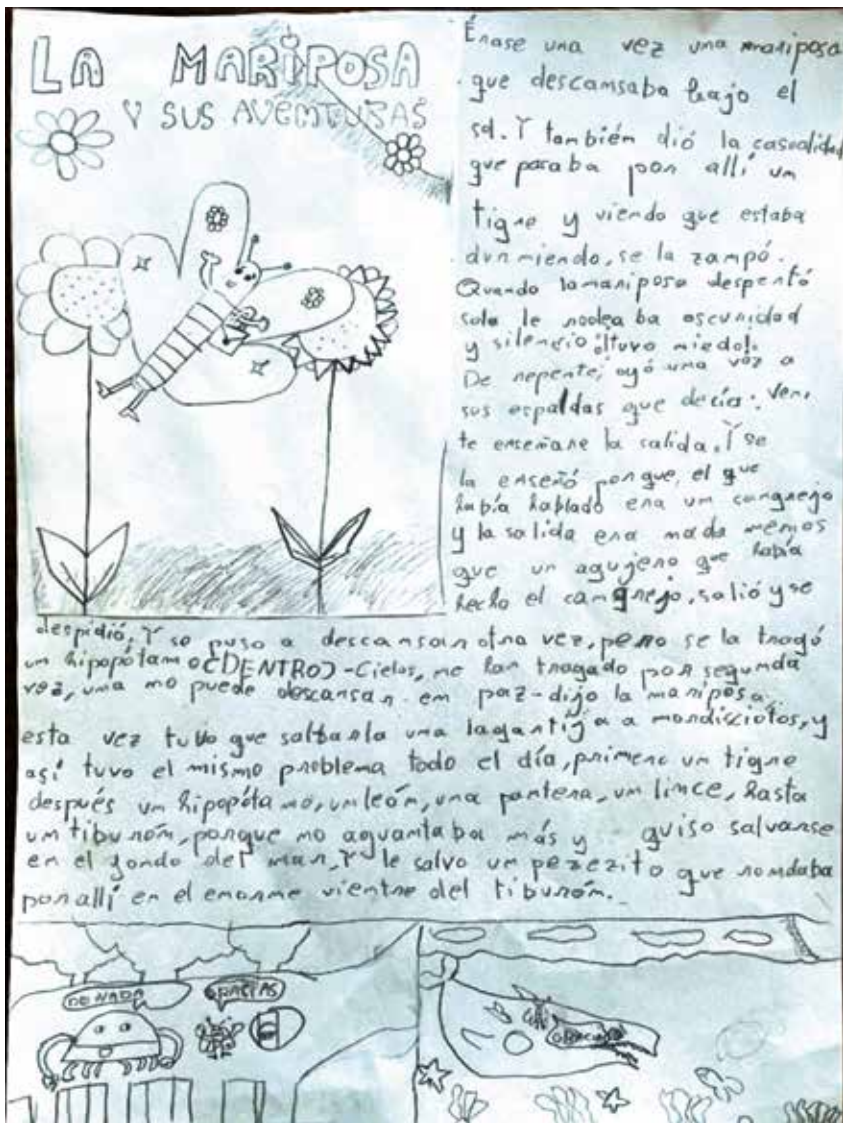 LA MARIPOSA
Y SUS AVENTURAS
Érase una vez una mariposa
que descansaba bajo el
sol. Y también dió la casualidad
que pasaba por allí un
tigre y viendo que estaba
durmiendo, se la zampó.
Quando la mariposa despertó
solo le rodeaba oscuridad
y silencio ¡tuvo miedo!.
De repente, oyó una voz a
sus espaldas que decía: Ven,
te enseñare la salida. Y se
la enseñó porque, el que
había hablado era un cangrejo
y la salida era nada menos
que un agujero que había
hecho el cangrejo, salió y se
despidió. Y se puso a descansar otra vez, pero se la tragó
un hipopótamo (DENTRO) -Cielos, me han tragado por segunda
vez, una no puede descansar en paz- dijo la mariposa,
esta vez tuvo que salbarla una lagartija a mordisciotos, y
así tuvo el mismo problema todo el día, primero un tigre
después un hipopótamo, un león, una pantera, un lince, hasta
un tiburón, porque no aguantaba más y quiso salvarse
en el fondo del mar, Y le salvo un pezezito que rondaba
por allí en el enorme vientre del tiburón.
DE NADA
GRACIAS
GRACIAS